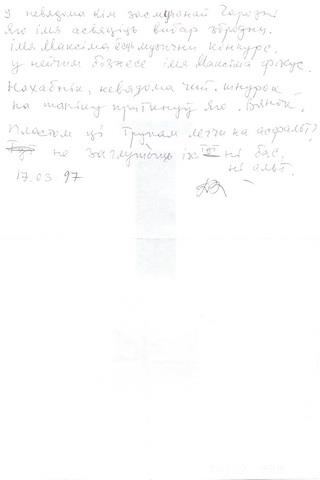 У невядома кім засмучонай Чарозні
Яго імя асвяціць выбар збродну.
імя Максіма ёсць музычны конкурс.
у нейчым бізнесе імя Максіма фокус.
Нахабнік, невядома чый. шнурок
на магілу прыпінуў яго. Вянок.
Пластом ці Трупам легчы на асфальт?
не заглушыць іх тут ні бас,
ні альт.
17.03.97